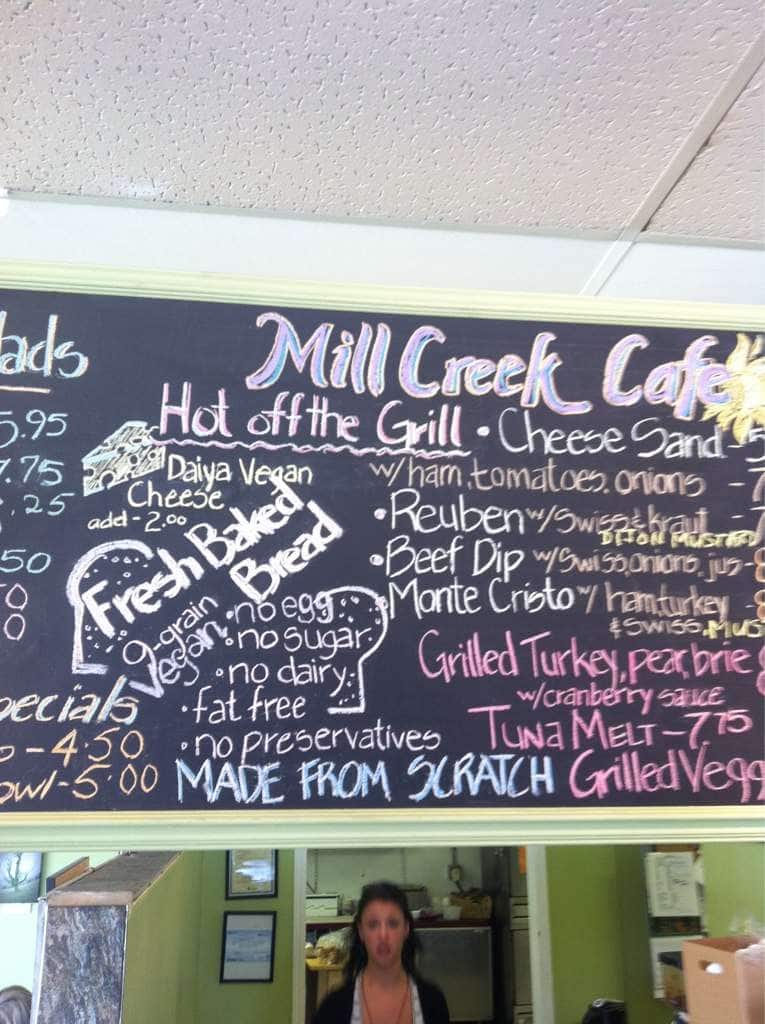 Mill Creek Cafe
5.95
7.75
.25
50
0
0
4.50
5.00
Hot off the Grill
Daiya Vegan
Cheese
add - 2.00
Fresh Baked
Bread
9-grain
Vegan
• no egg
• no sugar
• no dairy
• fat free
• no preservatives
MADE FROM SCRATCH
• Cheese Sand - 5
w/ ham, tomatoes, onions - 7
• Reuben w/ Swiss & kraut - 7
DIJON MUSTARD
• Beef Dip w/ Swiss, onions, jus - 8
• Monte Cristo w/ ham, turkey - 8
& SWISS, MUS
Grilled Turkey, pear, brie 8
w/ cranberry sauce
TUNA MELT - 7.75
Grilled Vegg